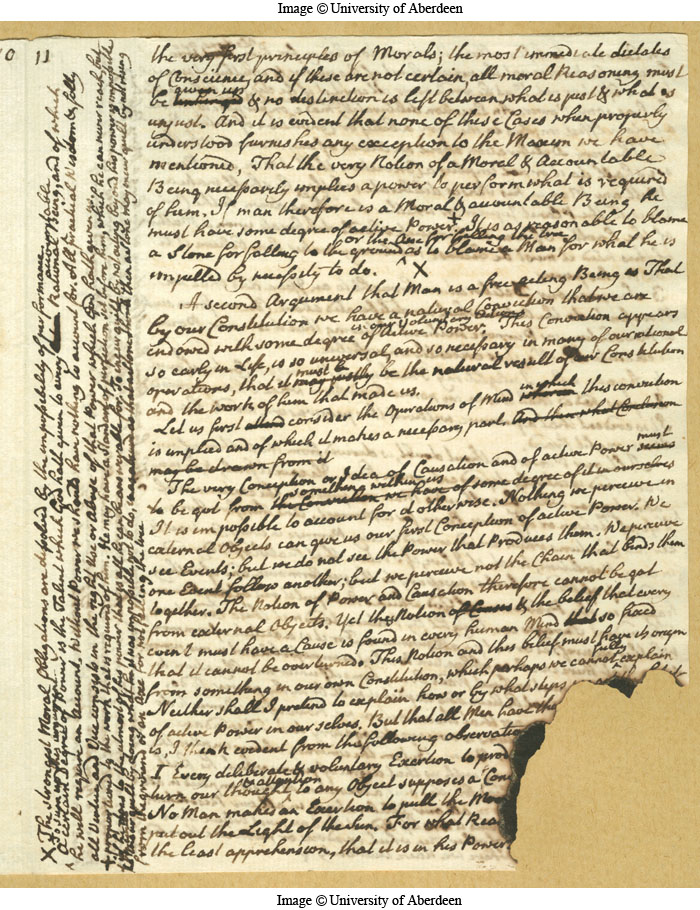 Image © University of Aberdeen
11
the very first principles of Morals; the most immediate dictates
of Conscience, and if these are not certain, all moral Reasoning must
be given up & no distinction is left between what is just & what is
unjust. And it is evident that none of these Cases when properly
understood furnishes any exception to the Maxim we have
mentioned, That the very Notion of a Moral & Accountable
Being necessarily implies a power to perform what is required
of him. If man therefore is a Moral & accountable Being he
must have some degree of active Power. + It is as reasonable to blame
a Stone for falling to the ground as to blame a Man for what he is
impelled by necessity to do. X
A second Argument that Man is a free acting Being is That
by our Constitution we have a natural Conviction that we are
endowed with some degree of Active Power. This Conviction appears
in our Voluntary Actions
so early in Life, is so universal, and so necessary in many of our rational
operations, that it must be the natural result of our Constitution
and the work of him that made us.
Let us first consider the Operations of Mind in which this conviction
is implied and of which it makes a necessary part. And then what Conclusion
may be drawn from it
The very Conception or Idea of Causation and of active Power must
something within us
to be got from the Conviction we have of some degree of it in ourselves
It is impossible to account for it otherwise. Nothing we perceive in
external Objects can give us our first Conception of active Power. We
see Events; but we do not see the Power that Produces them. We perceive
one Event follow another; but we perceive not the Chain that binds them
together. The Notion of Power and Causation therefore cannot be got
from external Objects. Yet the Notion of Causes & the belief that every
event must have a Cause is found in every human Mind so fixed
that it cannot be overturned. This Notion and this belief must have its origin
from something in our own Constitution, which perhaps we cannot fully explain
Neither shall I pretend to explain how or by what steps
of active Power in our selves. But that all Men have the
is, I think evident from the following observatio
1 Every deliberate & voluntary Exertion to prod
turn our thought & attention to any Object supposes a Con
No Man makes an Exertion to pull the Moo
put out the Light of the Sun. For what Rea
the least apprehension, that it is in his Power
X The strongest Moral Obligations are dissolved by the impossibility of performance.
A certain degree of Power is the Talent which God hath given to every Rational Being, and of which
he will require an account. Without Power we should have nothing to account for. All practical Wisdom & folly
all Virtue and Vice consists in the right Use or Abuse of that Power which God hath given us.
Image © University of Aberdeen